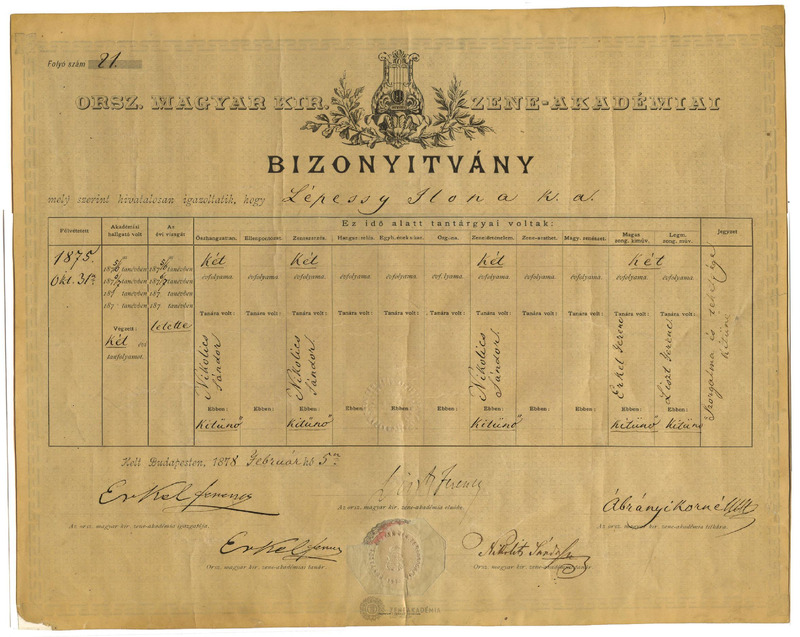 Folyó szám 21.
ORSZ. MAGYAR KIR. ZENE-AKADÉMIAI
BIZONYITVÁNY
mely szerint hivatalosan igazoltatik, hogy Lépessy Ilona k. a.
Ez idő alatt tantárgyai voltak:
Fölvétetett Akadémiai hallgató volt Az évi vizsgát Összhangzattan. Ellenpontozat. Zeneszerzés. Hangszerelés. Egyh. énekszer. Orgona. Zenetörténelem. Zene-aesthet. Magy. zenészet. Magas zong. kiműv. Legm. zong. műv. Jegyzet
1875. Okt. 31én
187 tanévben 187 tanévben
187 tanévben 187 tanévben
187 tanévben 187 tanévben
187 tanévben 187 tanévben
két két két két
évfolyama. évfolyama. évfolyama. évfolyama. évfolyama. évfolyama. évfolyama. évfolyama. évfolyama. évfolyama.
Végzett: két évi tanfolyamot.
letette
Tanára volt: Tanára volt: Tanára volt: Tanára volt: Tanára volt: Tanára volt: Tanára volt: Tanára volt: Tanára volt: Tanára volt: Tanára volt:
Nikolics Sándor Nikolics Sándor Nikolics Sándor Erkel Ferenc Liszt Ferenc
Szorgalma és tehetsége kitünő
Ebben: Ebben: Ebben: Ebben: Ebben: Ebben: Ebben: Ebben: Ebben: Ebben: Ebben:
kitünő kitünő kitünő kitünő kitünő
Kelt Budapesten, 1878 Február hó 5én
Erkel Ferencz
Liszt Ferencz
Ábrányi Kornél
Az orsz. magyar kir. zene-akadémia igazgatója.
Az orsz. magyar kir. zene-akadémia elnöke.
Az orsz. magyar kir. zene-akadémia titkára.
Erkel Ferencz
Nikolits Sándor
Orsz. magyar kir. zene-akadémiai tanár.
Orsz. magyar kir. zene-akadémiai tanár.
ZENEAKADÉMIA